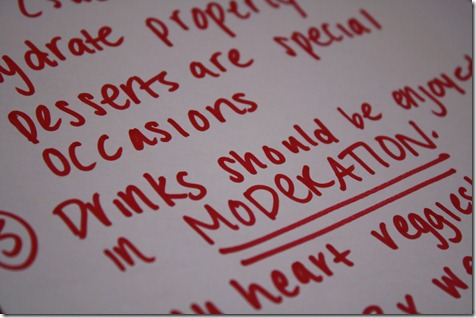 ydrate properly
Desserts are special
occasions
Drinks should be enjoyed
in MODERATION.
heart veggies